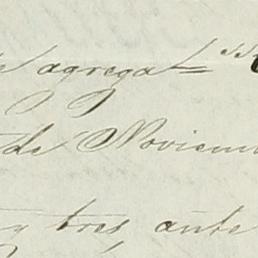 agregat
de Noviem
y tres ante